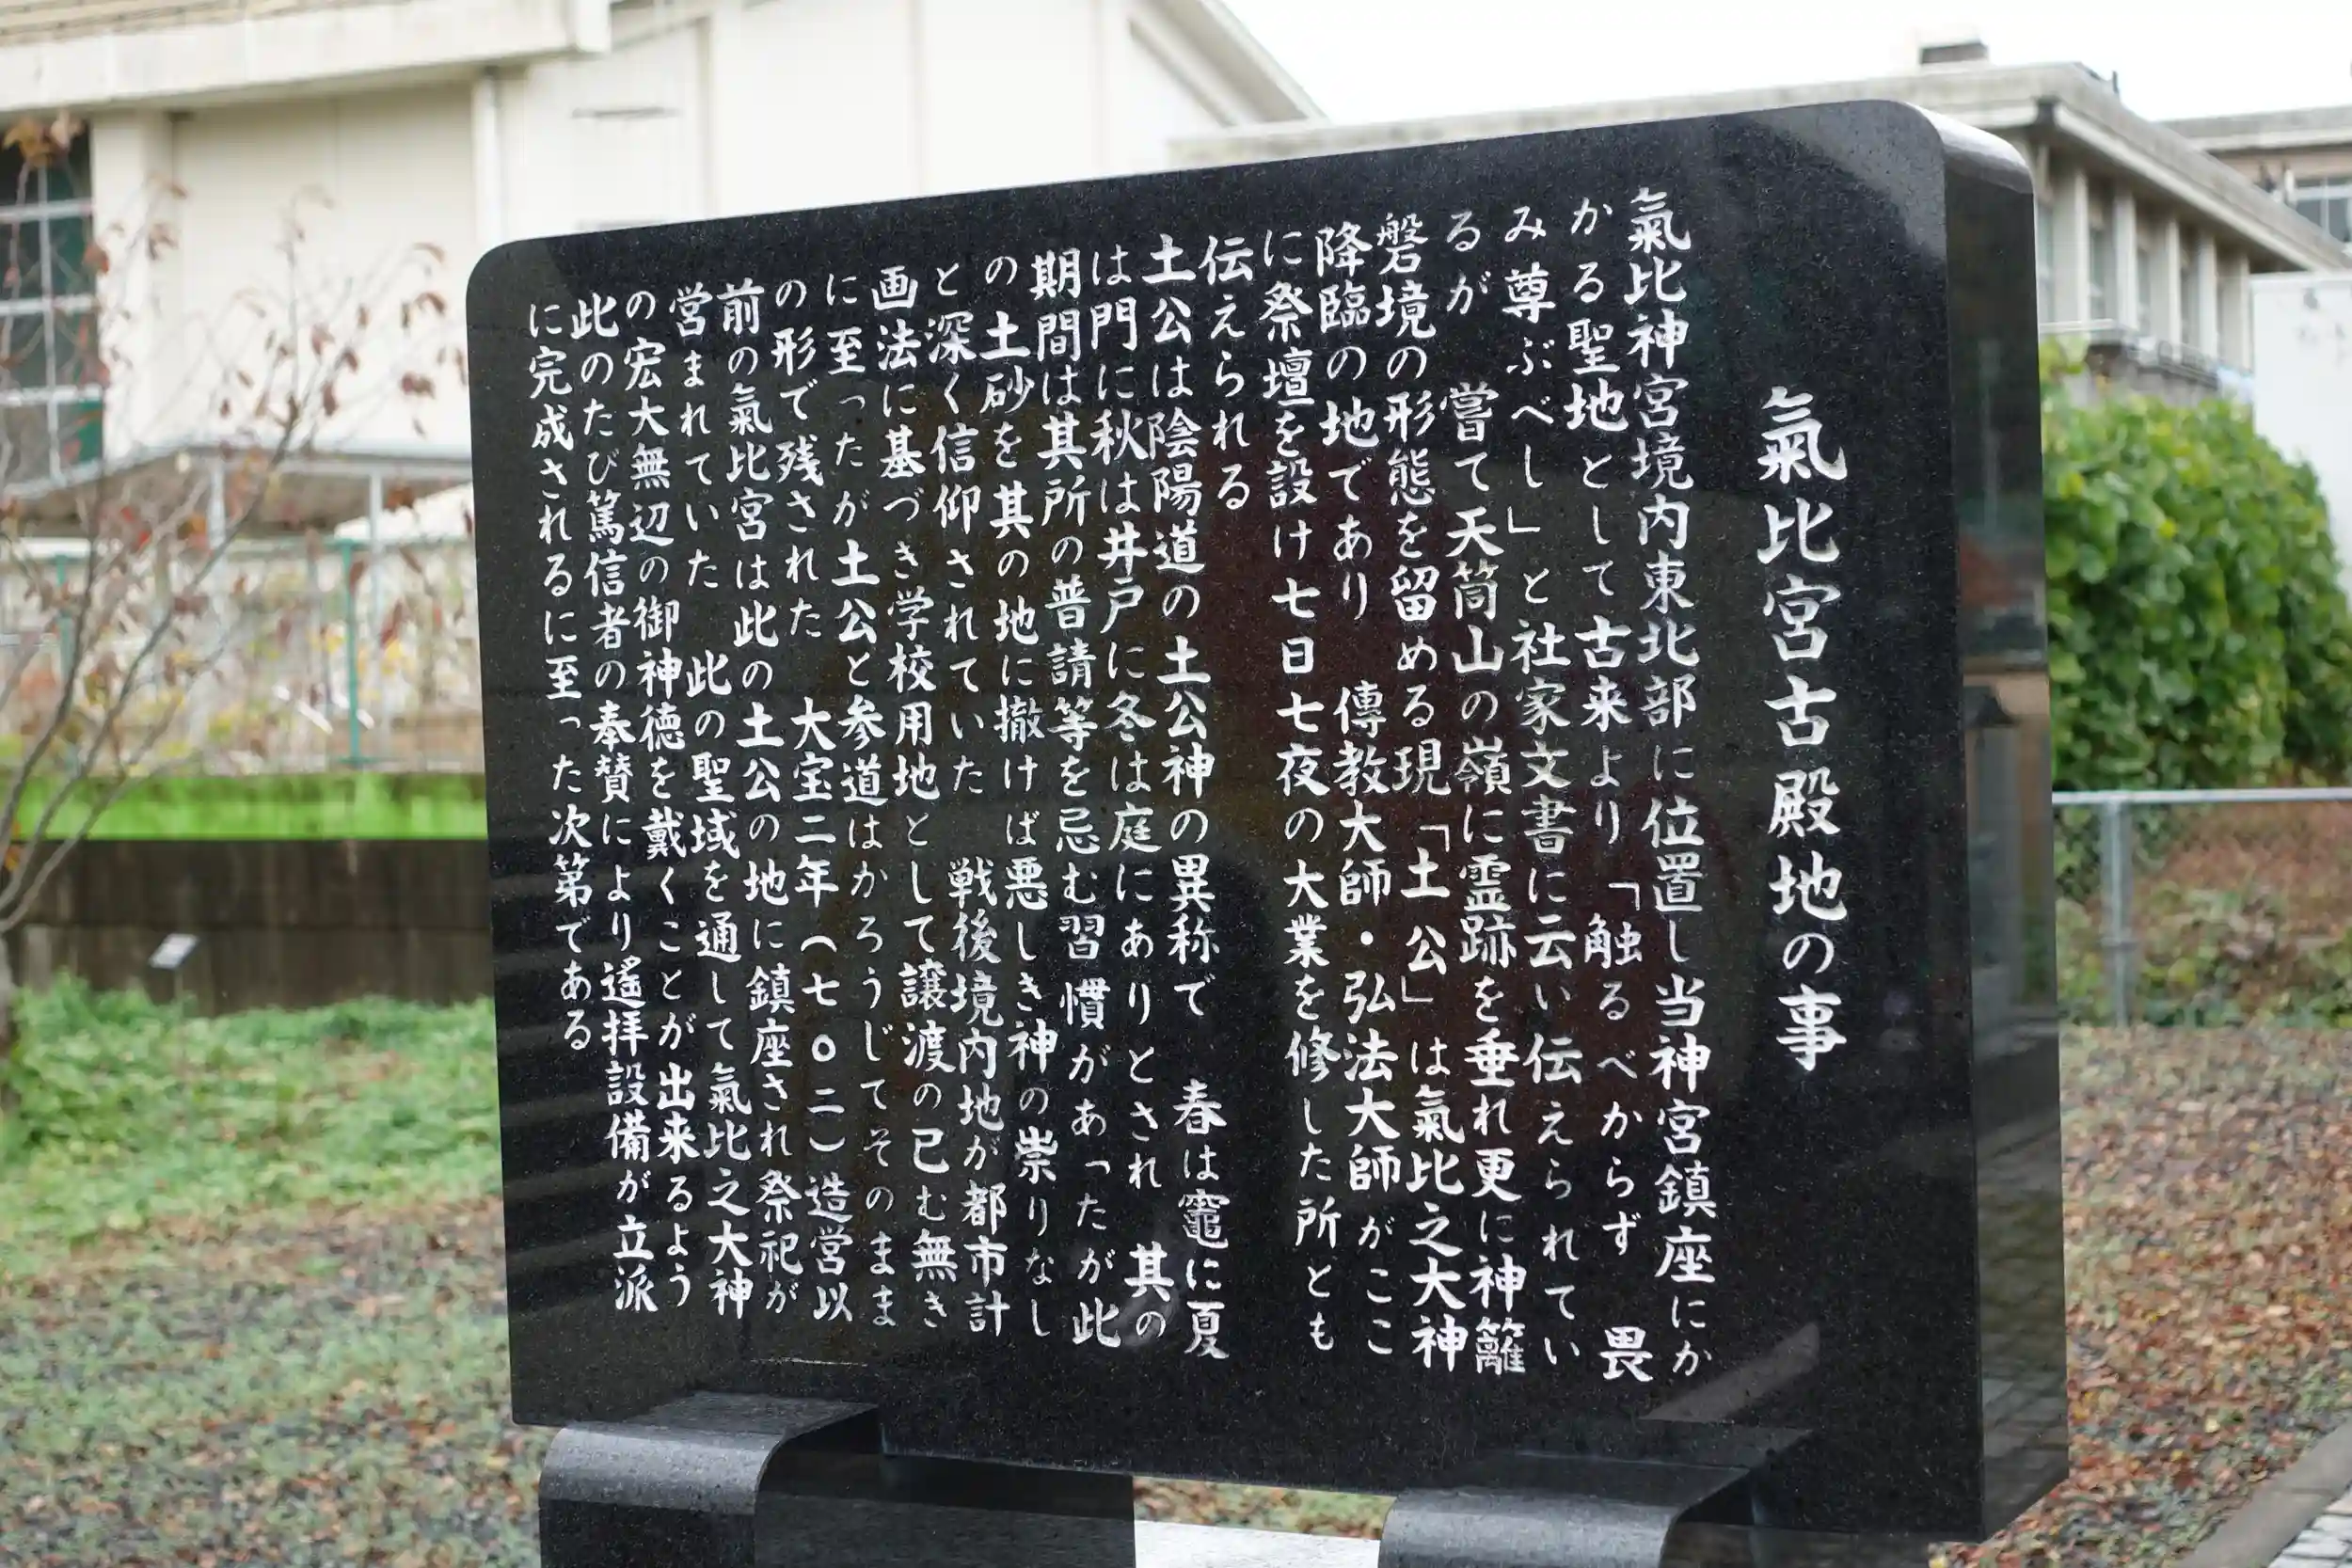 氣比宮古殿地の事
氣比神宮境内東北部に位置し当神宮鎮座にか
かる聖地として古来より「触るべからず　畏
み尊ぶべし」と社家文書に云い伝えられてい
るが　嘗て天筒山の嶺に霊跡を垂れ更に神籬
磐境の形態を留める現「土公」は氣比之大神
降臨の地であり　傳教大師・弘法大師がここ
に祭壇を設け七日七夜の大業を修した所とも
伝えられる
土公は陰陽道の土公神の異称で　春は竈に夏
は門に秋は井戸に冬は庭にありとされ　其の
期間は其所の普請等を忌む習慣があったが此
の土砂を其の地に撤けば悪しき神の祟りなし
と深く信仰されていた　戦後境内地が都市計
画法に基づき学校用地として譲渡の已む無き
に至ったが土公と参道はかろうじてそのまま
の形で残された　大宝二年（七〇二）造営以
前の氣比宮は此の土公の地に鎮座され祭祀が
営まれていた　此の聖域を通して氣比之大神
の宏大無辺の御神徳を戴くことが出来るよう
此のたび篤信者の奉賛により遙拝設備が立派
に完成されるに至った次第である